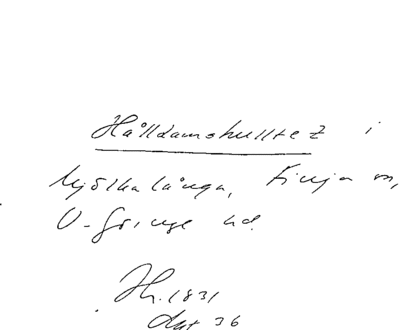 Hålldamshulltet i
Mjölkalånga, Finja sn,
V. Göinge hd.
Jh. 1831
Akt 36